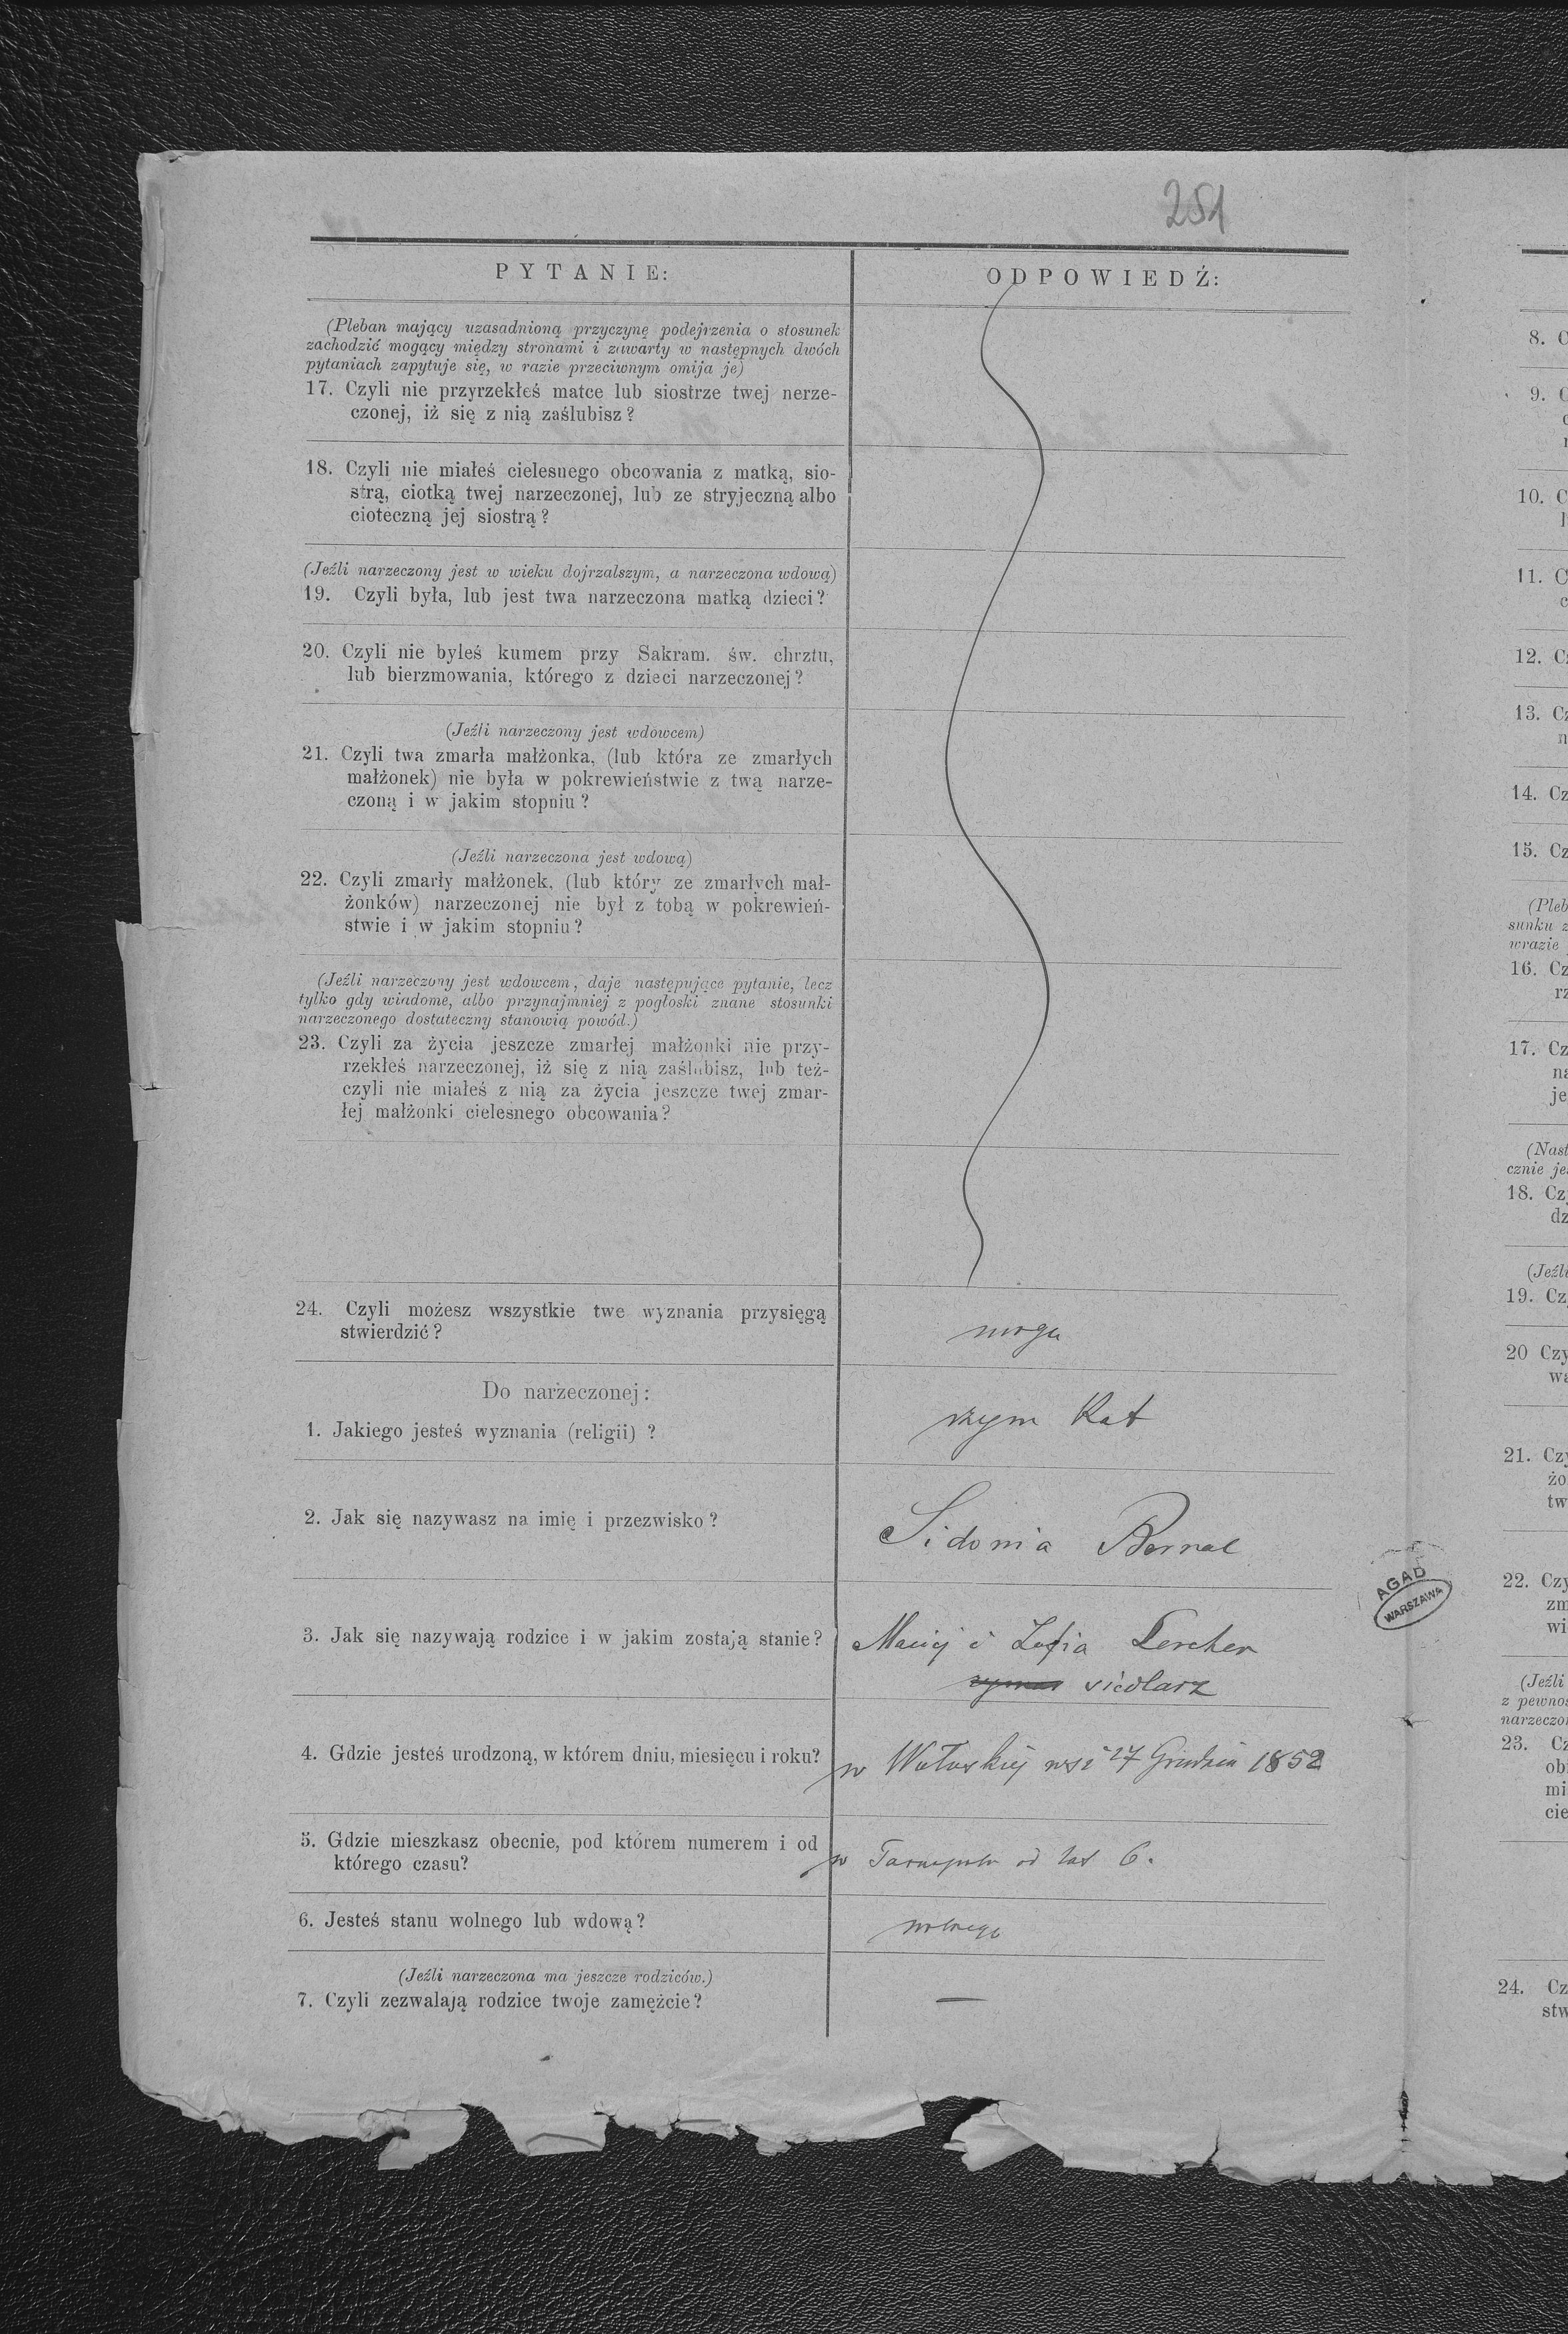 251
PYTANIE:
ODPOWIEDŹ:
(Pleban mający uzasadnioną przyczynę podejrzenia o stosunek
zachodzić mogący między stronami i zawarty w następnych dwóch
pytaniach zapytuje się, w razie przeciwnym omija je)
17. Czyli nie przyrzekłeś matce lub siostrze twej nerze-
czonej, iż się z nią zaślubisz?
18. Czyli nie miałeś cielesnego obcowania z matką, sio-
strą, ciotką twej narzeczonej, lub ze stryjeczną albo
cioteczną jej siostrą?
(Jeźli narzeczony jest w wieku dojrzalszym, a narzeczona wdową)
19. Czyli była, lub jest twa narzeczona matką dzieci?
20. Czyli nie byleś kumem przy Sakram. św. chrztu,
lub bierzmowania, którego z dzieci narzeczonej?
(Jeźli narzeczony jest wdowcem)
21. Czyli twa zmarła małżonka, (lub która ze zmarłych
małżonek) nie była w pokrewieństwie z twą narze-
czoną i w jakim stopniu?
(Jeźli narzeczona jest wdową)
22. Czyli zmarły małżonek, (lub który ze zmarłych mał-
żonków) narzeczonej nie był z tobą w pokrewień-
stwie i w jakim stopniu?
(Jeźli narzeczony jest wdowcem, daje następujące pytanie, lecz
tylko gdy wiadome, albo przynajmniej z pogłoski znane stosunki
narzeczonego dostateczny stanowią powód.)
23. Czyli za życia jeszcze zmarłej małżonki nie przy-
rzekłeś narzeczonej, iż się z nią zaślubisz, lub też-
czyli nie miałeś z nią za życia jeszcze twej zmar-
łej małżonki cielesnego obcowania?
24. Czyli możesz wszystkie twe wyznania przysięgą
stwierdzić?
mogę
Do narzeczonej:
1. Jakiego jesteś wyznania (religii) ?
rzym Kat
2. Jak się nazywasz na imię i przezwisko?
Sidonia
3. Jak się nazywają rodzice i w jakim zostają stanie?
Maciej i Zofia Lercher
siedlarz
4. Gdzie jesteś urodzoną, w którem dniu, miesięcu i roku?
w wsi 27 Grudnia 1852
5. Gdzie mieszkasz obecnie, pod którem numerem i od
którego czasu?
w Tarnopolu od lat 6.
6. Jesteś stanu wolnego lub wdową?
wolnego
(Jeźli narzeczona ma jeszcze rodziców.)
7. Czyli zezwalają rodzice twoje zamężcie?
—
AGAD
WARSZAWA
8. C
9. C
10. C
11. C
12. C
13. Cz
14. Cz
15. Cz
(Pleb
sunku z
wrazie
16. Cz
rz
17. Cz
na
je
(Nast
cznie je
18. Cz
dz
(Jeźli
19. Cz
20 Czy
wa
21. Czy
żo
tw
22. Czy
zm
wi
(Jeźli
z pewnoś
narzeczon
23. Cz
ob
mi
cie
24. Cz
stw